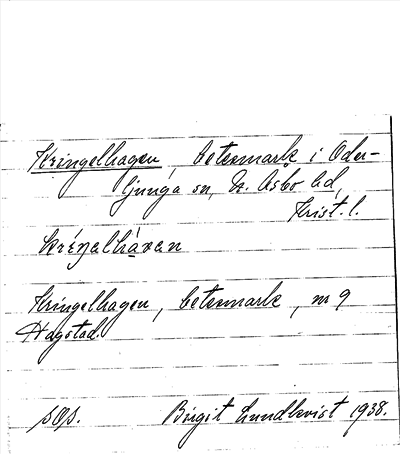 Kringelhagen, betesmark i Oder-
ljunga sn, N. Åsbo hd,
Krist. l.
Kringelhagen, betesmark, nr 9
Hagstad.
SOS. Birgit Lundkvist 1938.